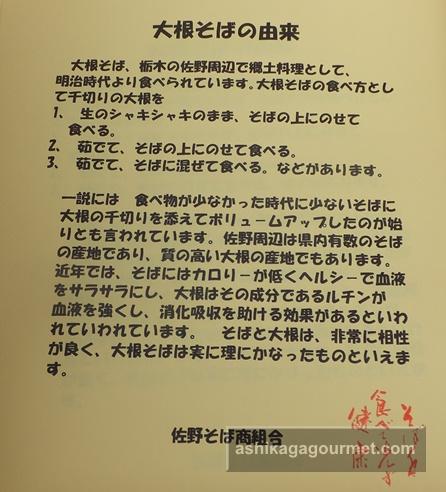 大根そばの由来
大根そば、栃木の佐野周辺で郷土料理として、
明治時代より食べられています。大根そばの食べ方とし
て千切りの大根を
1、 生のシャキシャキのまま、そばの上にのせて
食べる。
2、 茹でて、そばの上にのせて食べる。
3、 茹でて、そばに混ぜて食べる。などがあります。
一説には 食べ物が少なかった時代に少ないそばに
大根の千切りを添えてボリュームアップしたのが始
りとも言われています。佐野周辺は県内有数のそば
の産地であり、質の高い大根の産地でもあります。
近年では、そばにはカロリーが低くヘルシーで血液
をサラサラにし、大根はその成分であるルチンが
血液を強くし、消化吸収を助ける効果があるといわ
れていわれています。 そばと大根は、非常に相性
が良く、大根そばは実に理にかなったものといえま
す。
佐野そば商組合
食べ
健康
ashikagagourmet.com